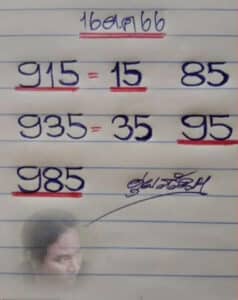 16ตค66
915 = 15 85
935 = 35 95
985